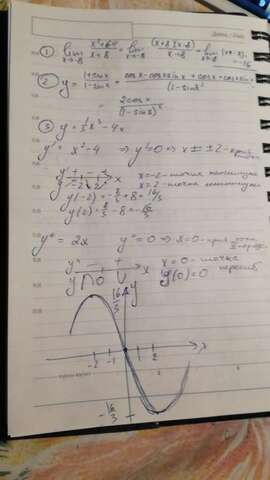 ① lim x→-8 (x²-64)/(x+8) = lim x→-8 (x+8)(x-8)/(x+8) = lim x→-8 (x-8) = -16
② y = (1+sinx)/(1-sinx) = (cosx - cosx sinx + cosx + cosx sinx)/(1-sinx)² =
= 2cosx/(1-sinx)²
③ y = 1/3 x³ - 4x
y' = x² - 4 ⇒ y'=0 ⇔ x = ±2 -
y' + - + x
y -2 2
x=-2 - точка максимума
x=2 - точка минимума
y(-2) = -8/3 + 8 = 16/3
y(2) = 8/3 - 8 = -16/3
y'' = 2x y''=0 ⇒ x=0 -
y'' - + x
y ∩ 0 ∪
x=0 - точка
перегиб
y(0)=0
16/3 y
-2 -1 1 2 x
-16/3